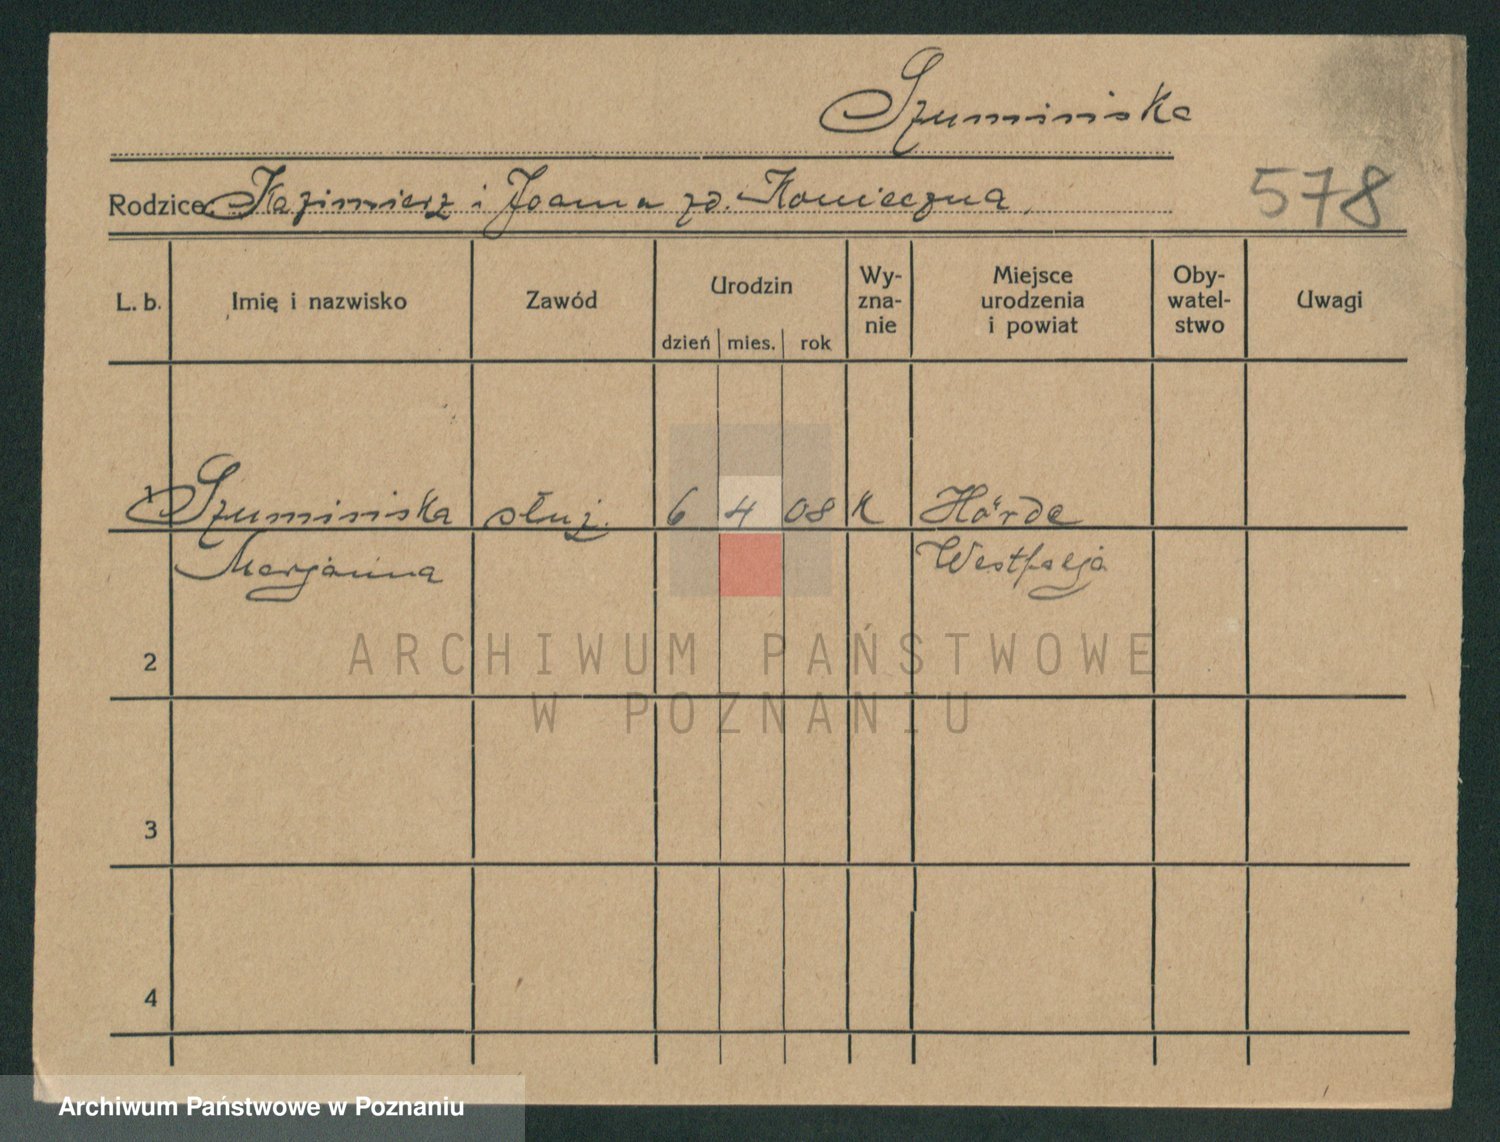 Szumińska
Rodzice: Kazimierz i Joanna zd. Konieczna
578
L. b. Imię i nazwisko Zawód Urodzin dzień mies. rok Wy-zna-nie Miejsce urodzenia i powiat Oby-watel-stwo Uwagi
1 Szumińska służ. 6 4 08 K Hörde
Marjanna Westfalja
2
ARCHIWUM PAŃSTWOWE
W POZNANIU
3
4
Archiwum Państwowe w Poznaniu